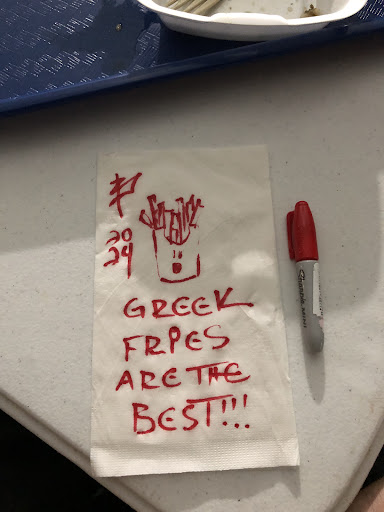 20
24
GREEK
FRIES
ARE THE
BEST!!!
Sharpie